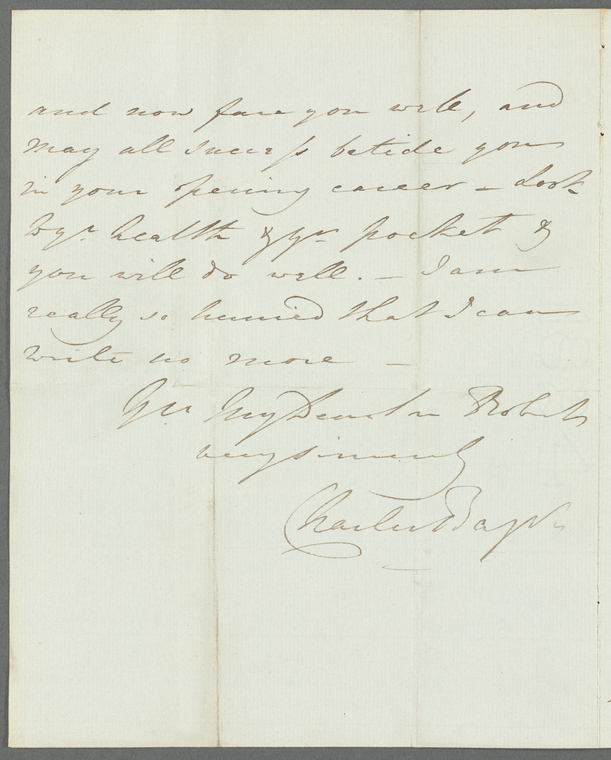 and now fare you well, and
may all success betide you
in your opening career – Look
to yr. health & yr. pocket &
you will do well. – I am
really so hurried that I can
write no more –
Yrs My Dear Sir Robert
very sincerely
Charles Bagot